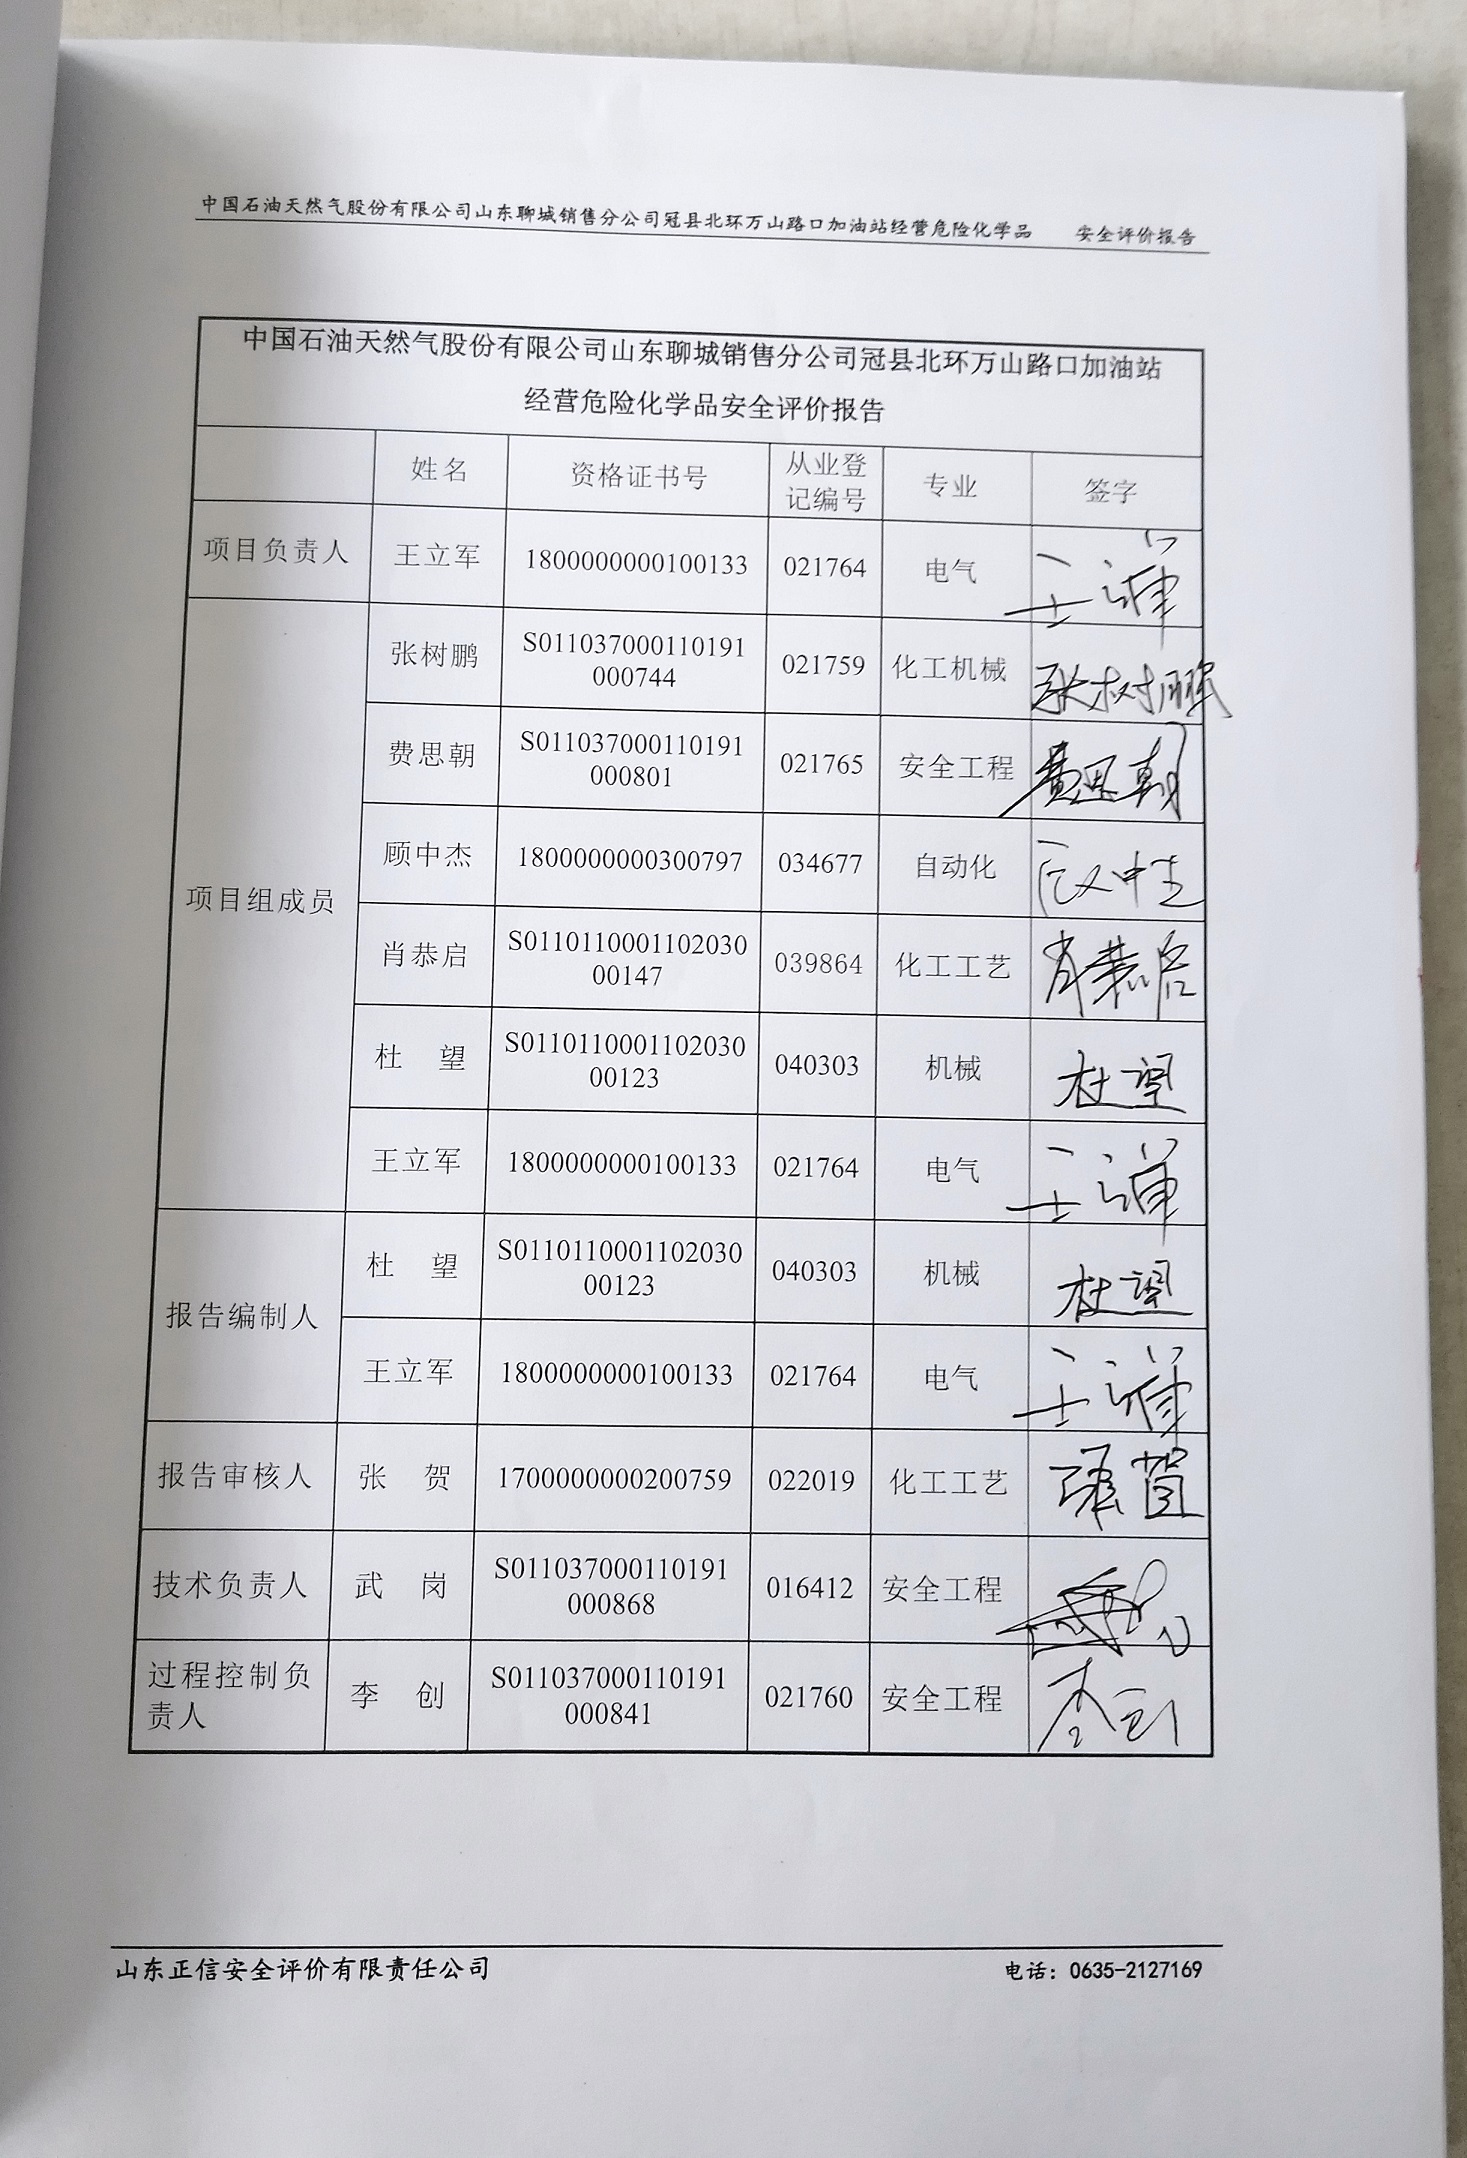 中国石油天然气股份有限公司山东聊城销售分公司冠县北环万山路口加油站经营危险化学品 安全评价报告
中国石油天然气股份有限公司山东聊城销售分公司冠县北环万山路口加油站
经营危险化学品安全评价报告
姓名 资格证书号 从业登 专业 签字
记编号
项目负责人 王立军 1800000000100133 021764 电气 王立军
项目组成员
张树鹏 S011037000110191 021759 化工机械 张树鹏
000744
费思朝 S011037000110191 021765 安全工程 费思朝
000801
顾中杰 1800000000300797 034677 自动化 顾中杰
肖恭启 S0110110001102030 039864 化工工艺 肖恭启
00147
杜 望 S0110110001102030 040303 机械 杜望
00123
王立军 1800000000100133 021764 电气 王立军
报告编制人
杜 望 S0110110001102030 040303 机械 杜望
00123
王立军 1800000000100133 021764 电气 王立军
报告审核人 张 贺 1700000000200759 022019 化工工艺 张贺
技术负责人 武 岗 S011037000110191 016412 安全工程
000868
过程控制负 李 创 S011037000110191 021760 安全工程 李创
责人 000841
山东正信安全评价有限责任公司 电话：0635-2127169